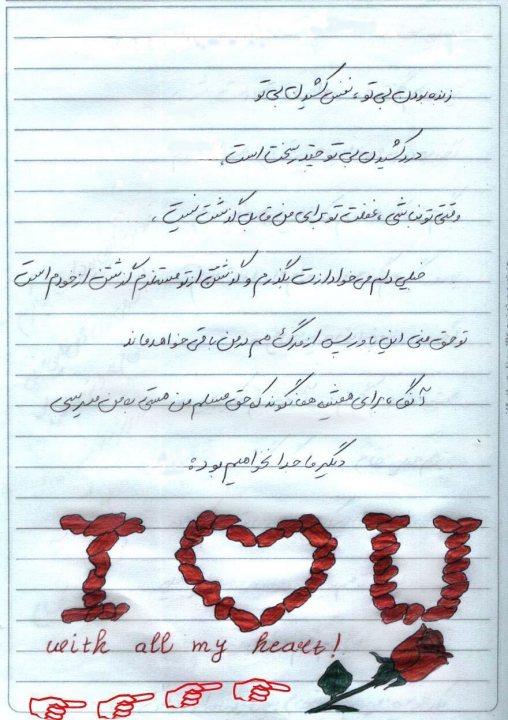 زنده بودن بی تو، نفس کشیدن بی تو
درد کشیدن بی تو چقدر سخت است.
وقتی تو نباشی، غفلت تو برای من قابل گذشت نیست،
خیلی دلم می خواد ازت بگذرم و گذشتن از تو مستلزم گذشتن از خودم است
تو حق منی این باور پس از مرگ هم در من باقی خواهد ماند
آنگاه برای همیشه همانگونه که حق مسلم من هستی به من میرسی
دیگر ما جدا نخواهیم بود.
I ♥ U
with all my heart!